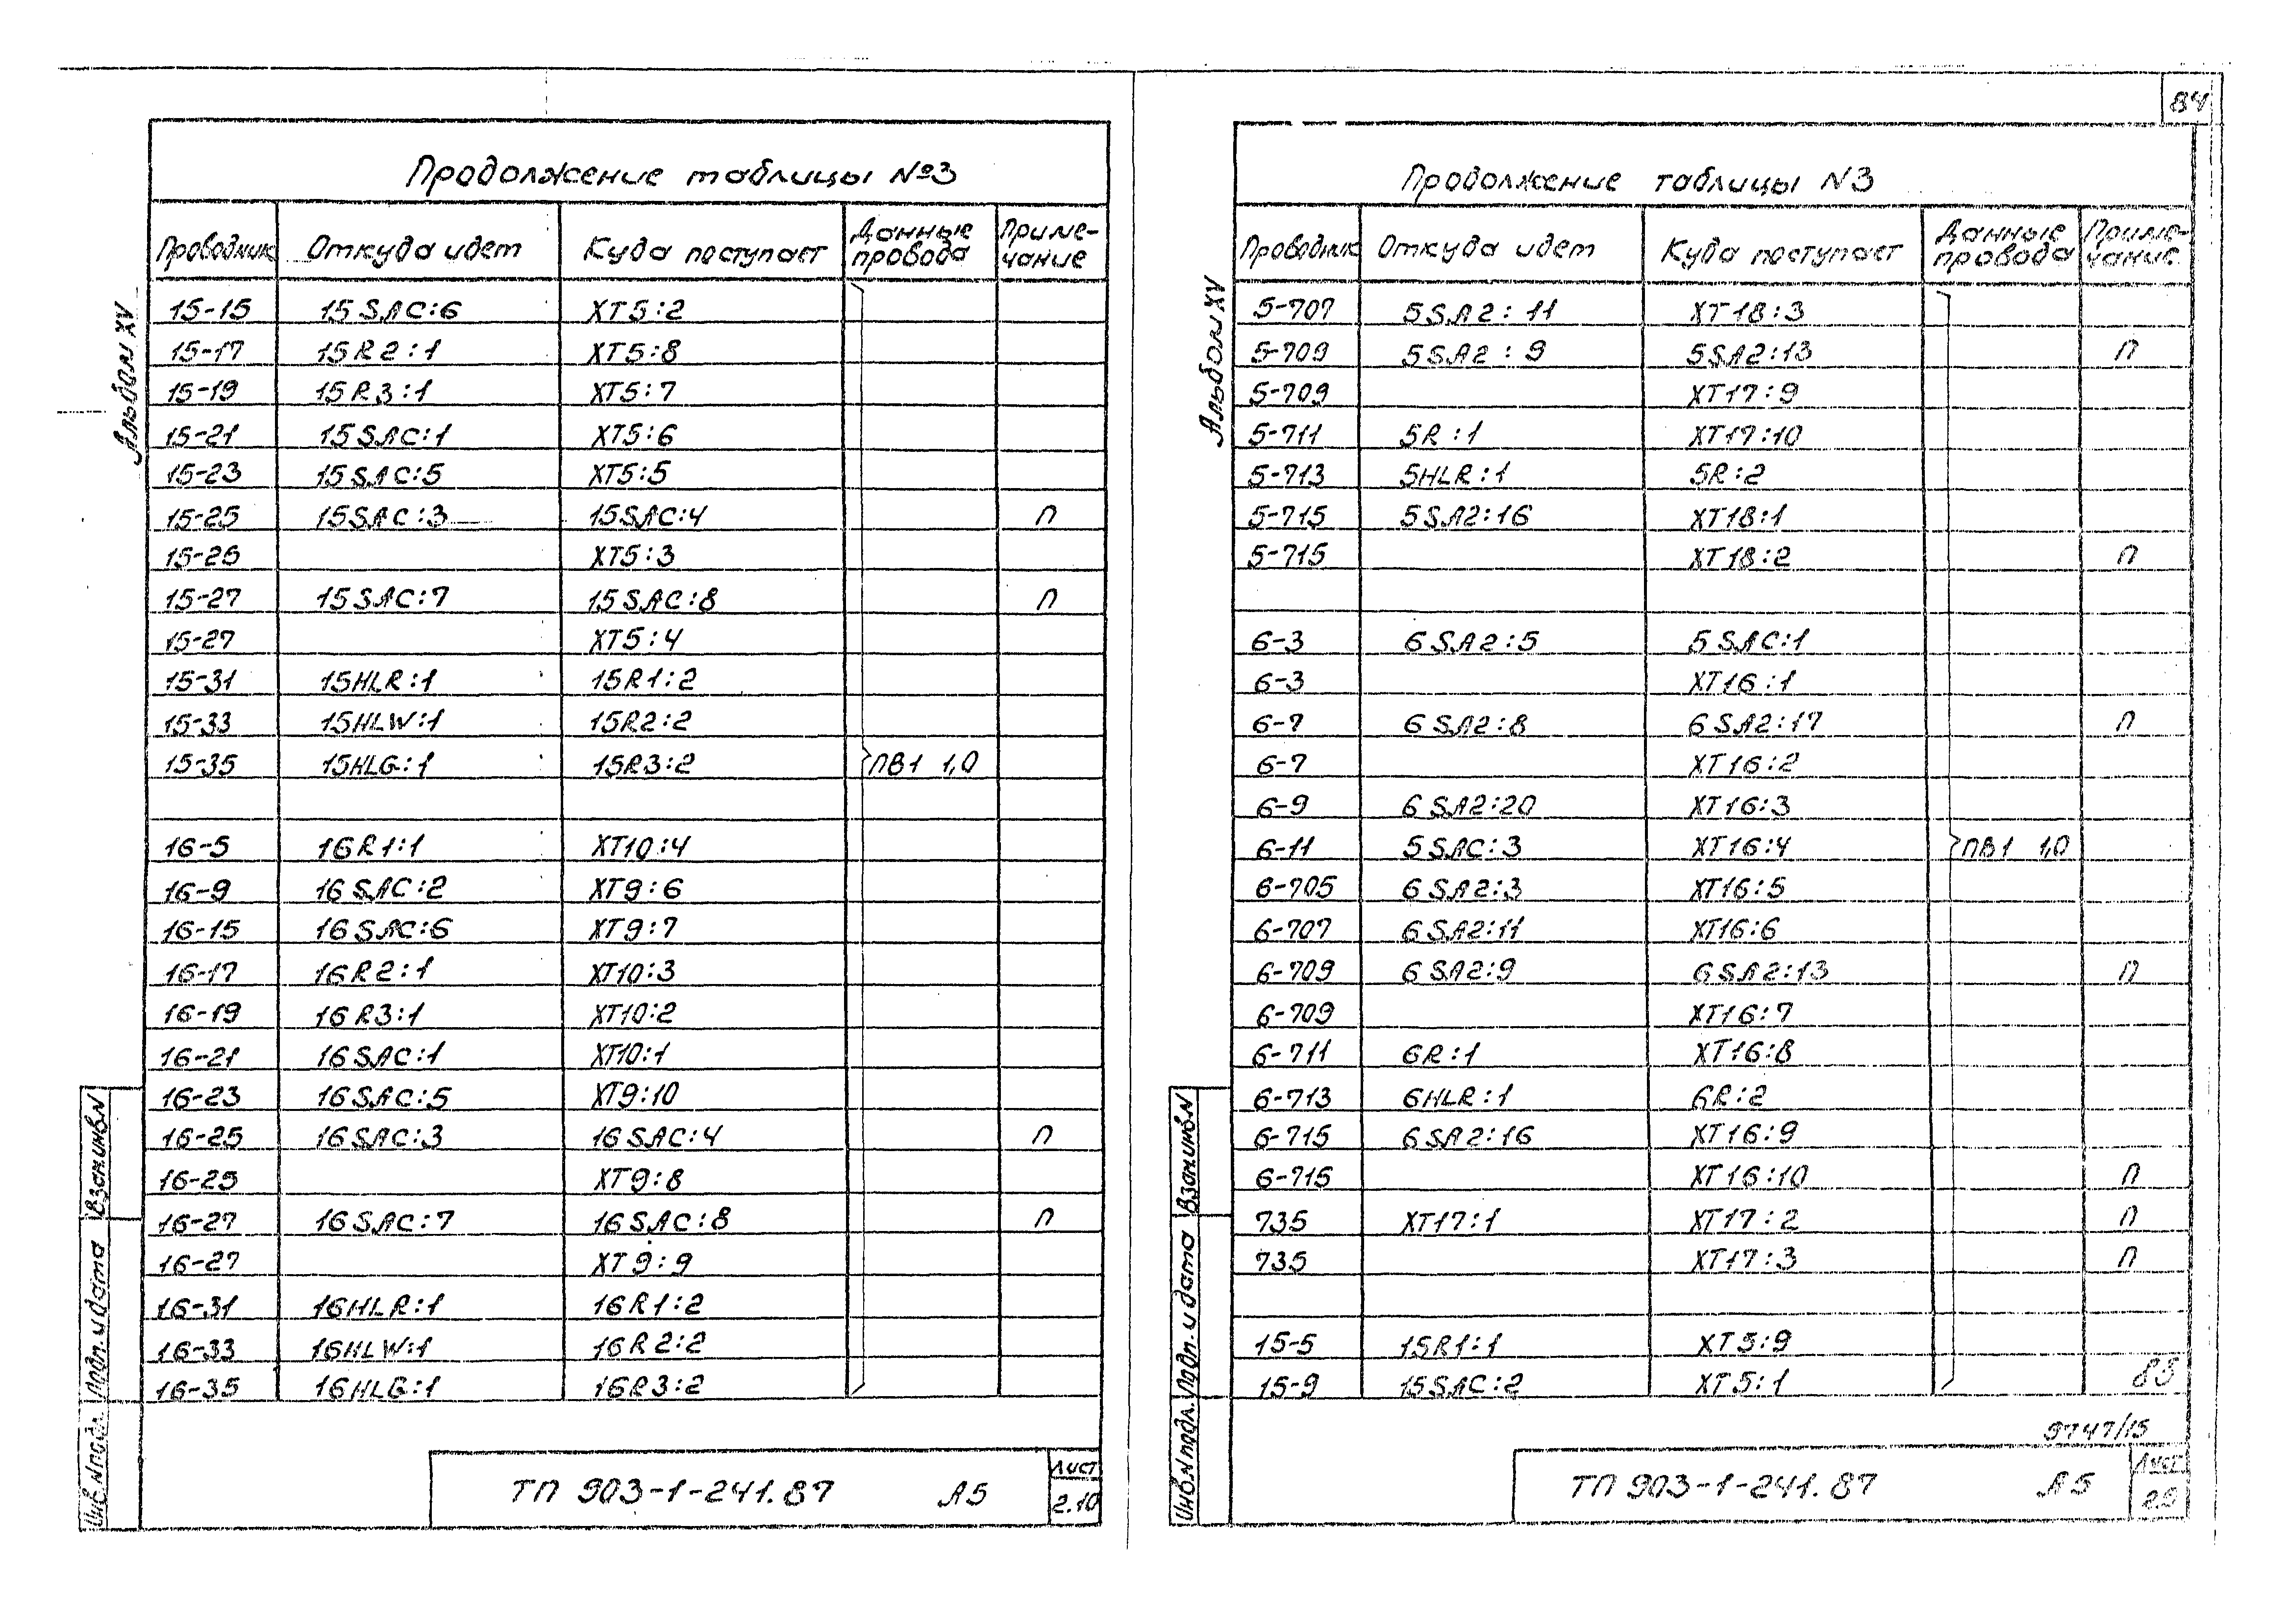 84
Альбом XV
Продолжение таблицы №3
Проводник Откуда идет Куда поступает Данные провода Примечание
15-15 15SAC:6 XT5:2
15-17 15R2:1 XT5:8
15-19 15R3:1 XT5:7
15-21 15SAC:1 XT5:6
15-23 15SAC:5 XT5:5
15-25 15SAC:3 15SAC:4 П
15-25 XT5:3
15-27 15SAC:7 15SAC:8 П
15-27 XT5:4
15-31 15HLR:1 15R1:2
15-33 15HLW:1 15R2:2
15-35 15HLG:1 15R3:2 ПВ1 1,0
16-5 16R1:1 XT10:4
16-9 16SAC:2 XT9:6
16-15 16SAC:6 XT9:7
16-17 16R2:1 XT10:3
16-19 16R3:1 XT10:2
16-21 16SAC:1 XT10:1
16-23 16SAC:5 XT9:10
16-25 16SAC:3 16SAC:4 П
16-25 XT9:8
16-27 16SAC:7 16SAC:8 П
16-27 XT9:9
16-31 16HLR:1 16R1:2
16-33 16HLW:1 16R2:2
16-35 16HLG:1 16R3:2
Взам.инв.N
Подп. и дата
Инв.N подл.
ТП 903-1-241.87 А5
Лист
2.10
Альбом XV
Продолжение таблицы N3
Проводник Откуда идет Куда поступает Данные провода Примечание
5-707 5SA2:11 XT18:3
5-709 5SA2:9 5SA2:13 П
5-709 XT17:9
5-711 5R:1 XT17:10
5-713 5HLR:1 5R:2
5-715 5SA2:16 XT18:1
5-715 XT18:2 П
6-3 6SA2:5 5SAC:1
6-3 XT16:1
6-7 6SA2:8 6SA2:17 П
6-7 XT16:2
6-9 6SA2:20 XT16:3
6-11 5SAC:3 XT16:4 ПВ1 1,0
6-705 6SA2:3 XT16:5
6-707 6SA2:11 XT16:6
6-709 6SA2:9 6SA2:13 П
6-709 XT16:7
6-711 6R:1 XT16:8
6-713 6HLR:1 6R:2
6-715 6SA2:16 XT16:9
6-715 XT16:10 П
735 XT17:1 XT17:2 П
735 XT17:3 П
15-5 15R1:1 XT5:9
15-9 15SAC:2 XT5:1
83
9747/15
Взам.инв.N
Подп. и дата
Инв.N подл.
ТП 903-1-241.87 А5
Лист
2.9